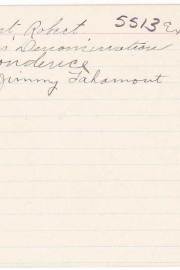 st, Robert 5513 Ex
s Denomination
ondence
Jimmy Lahamont